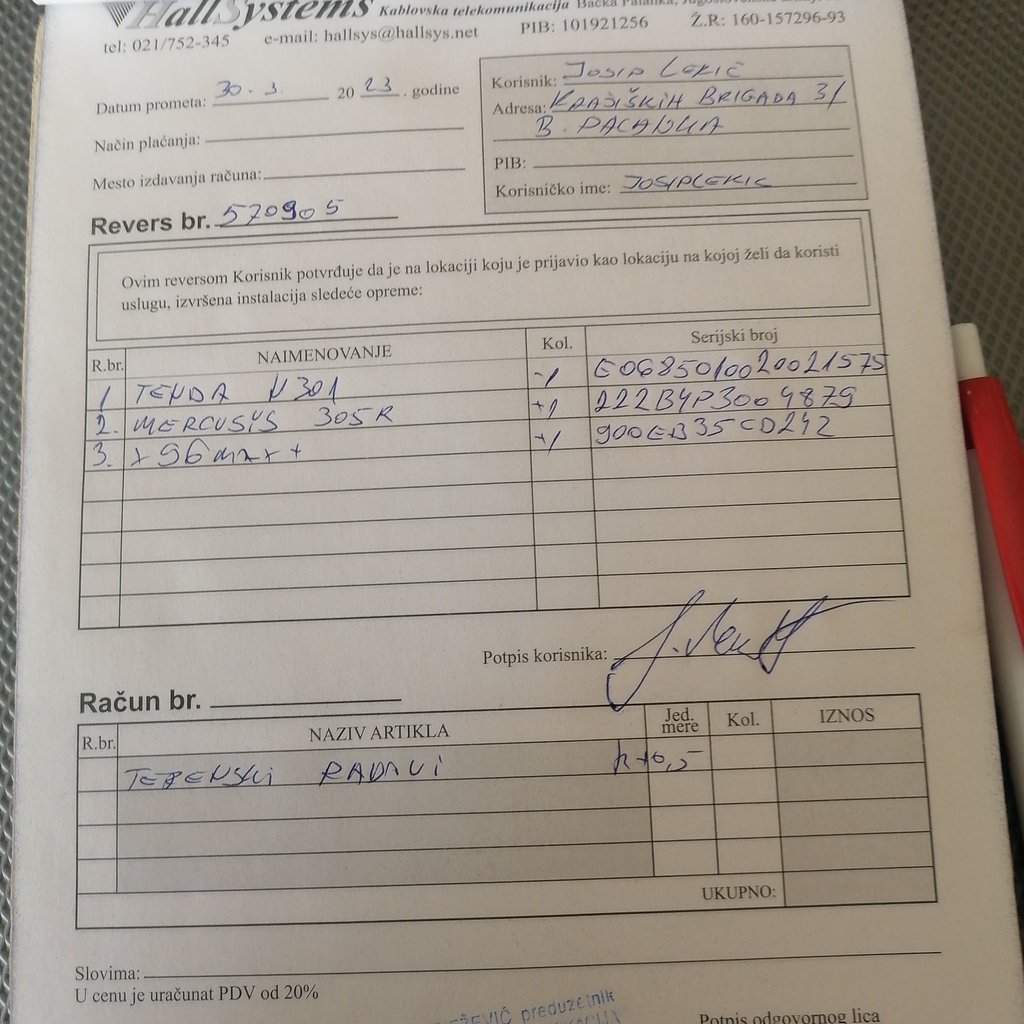 HallSystems Kablovska telekomunikacija Bačka Palanka,
tel: 021/752-345 e-mail: hallsys@hallsys.net PIB: 101921256 Ž.R: 160-157296-93
Datum prometa: 30.3. 2023. godine
Način plaćanja:
Mesto izdavanja računa:
Revers br. 570905
Korisnik: JOSIP LEKIĆ
Adresa: KRAJIŠKIH BRIGADA 31
B. PALANKA
PIB:
Korisničko ime: JOSIPLEKIC
Ovim reversom Korisnik potvrđuje da je na lokaciji koju je prijavio kao lokaciju na kojoj želi da koristi
uslugu, izvršena instalacija sledeće opreme:
R.br. NAIMENOVANJE Kol. Serijski broj
1 TENDA N301 -1 E0685010020021575
2. MERCUSYS 305R +1 222B4P3004879
3. +1 900EB35CD242
Potpis korisnika:
Račun br.
R.br. NAZIV ARTIKLA Jed. mere Kol. IZNOS
TERENSKI RADOVI
UKUPNO:
Slovima:
U cenu je uračunat PDV od 20%
preduzetnik
Potpis odgovornog lica